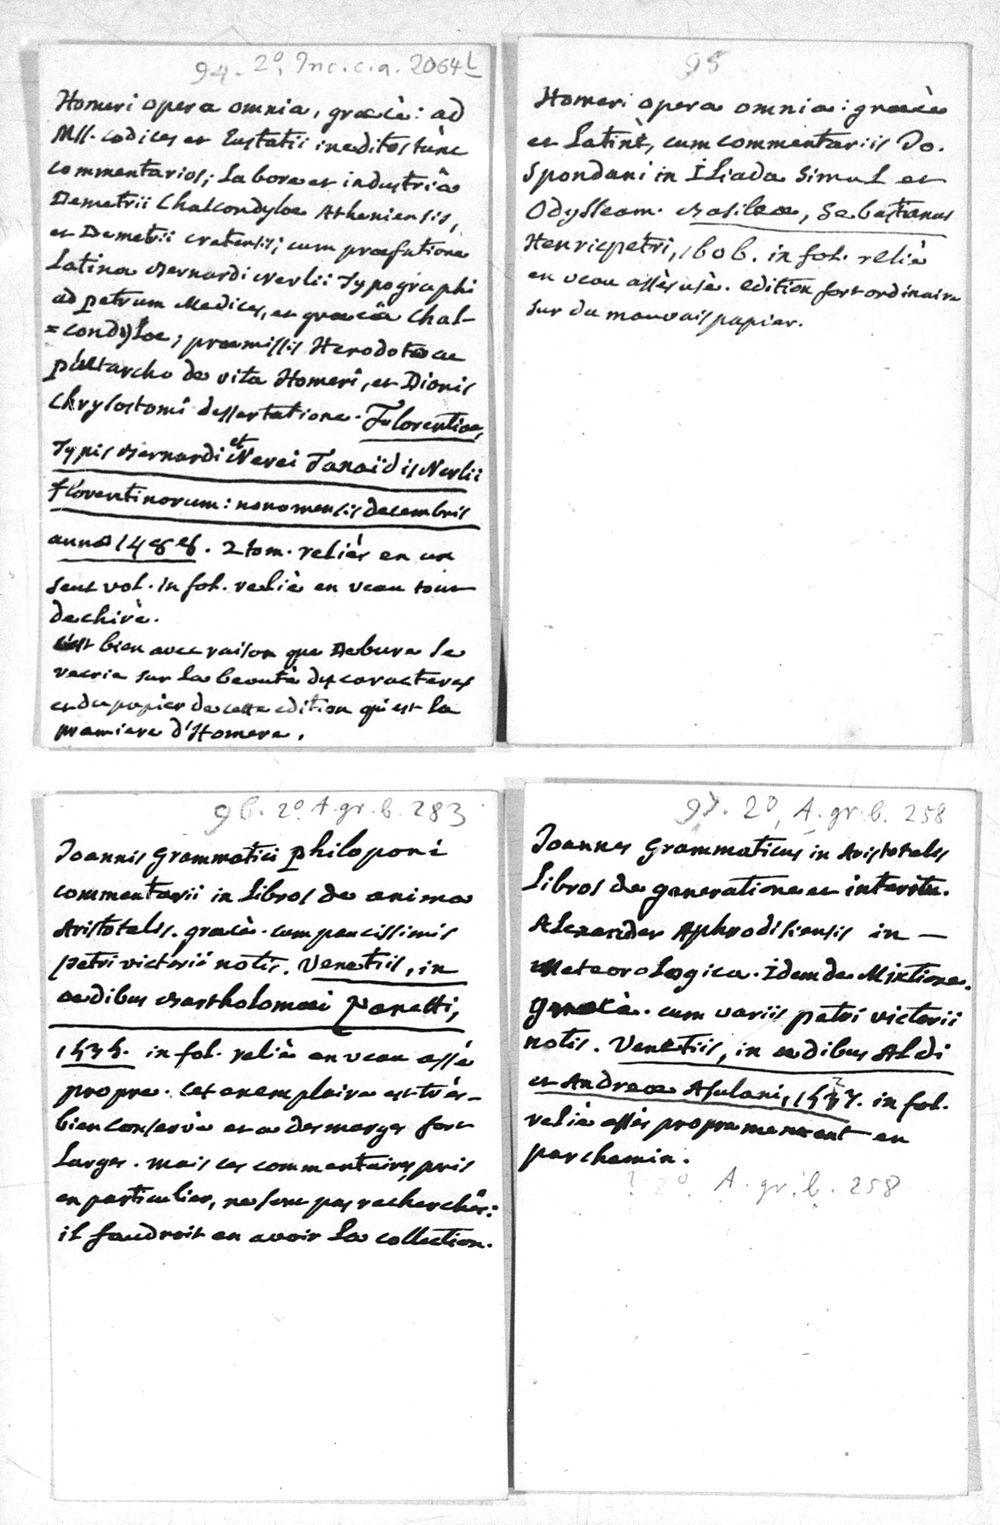 94. 2°. Inc. c. a. 2064 L
Homeri opera omnia, græcè: ad
Mss. codices et Eustatii ineditos tùnc
commentarios; labore et industriâ
Demetrii Chalcondylæ Atheniensis,
et Demetrii cretensis; cum præfatione
Latina Bernardi Nerlii Typographi
ad petrum Medices, et græcâ Chal-
=condylæ; præmissis Herodoto ac
plutarcho de vita Homeri, et Dionis
Chrysostomi dessertatione. Florentiæ,
Typis Bernardi et Nerei Tanaïdis Nerlii
florentinorum: nono mensis decembris
anno 1488. 2 tom. reliés en un
seul vol. in fol. relié en veau tout
dechiré.
C'est bien avec raison que Debure se
recrie sur la beauté des caracteres
et du papier de cette edition qui est la
premiere d'Homere.
95
Homeri opera omnia: græcè
et Latinè, cum commentariis Jo.
Spondani in Iliada simul et
Odysseam. Basileæ, Sebastianus
Henricpetri, 1606. in fol. relié
en veau assès usè. edition fort ordinaire
sur du mauvais papier.
96. 2° A. gr. b. 283
Joannis Grammatici philoponi
commentarii in libros de anima
Aristotelis. græcè. cum paucissimis
petri victorii notis. Venetiis, in
ædibus Bartholomæi Zanetti,
1535. in fol. relié en veau assé
propre. Cet exemplaire est très-
bien conservé et a des marges fort
larges. mais ces commentaires, pris
en particulier, ne sont pas recherchés:
il faudroit en avoir la collection.
97. 2°, A. gr. b. 258
Joannes Grammaticus in Aristotelis
Libros de generatione et interitu.
Alexander Aphrodisiensis in —
Meteorologica. Idem de Mixtione.
Græcè. cum variis petri victorii
notis. Venetiis, in ædibus Aldi
et Andreæ Asulani, 1527. in fol.
relié assès proprement en
parchemin.
? 2° A. gr. b. 258